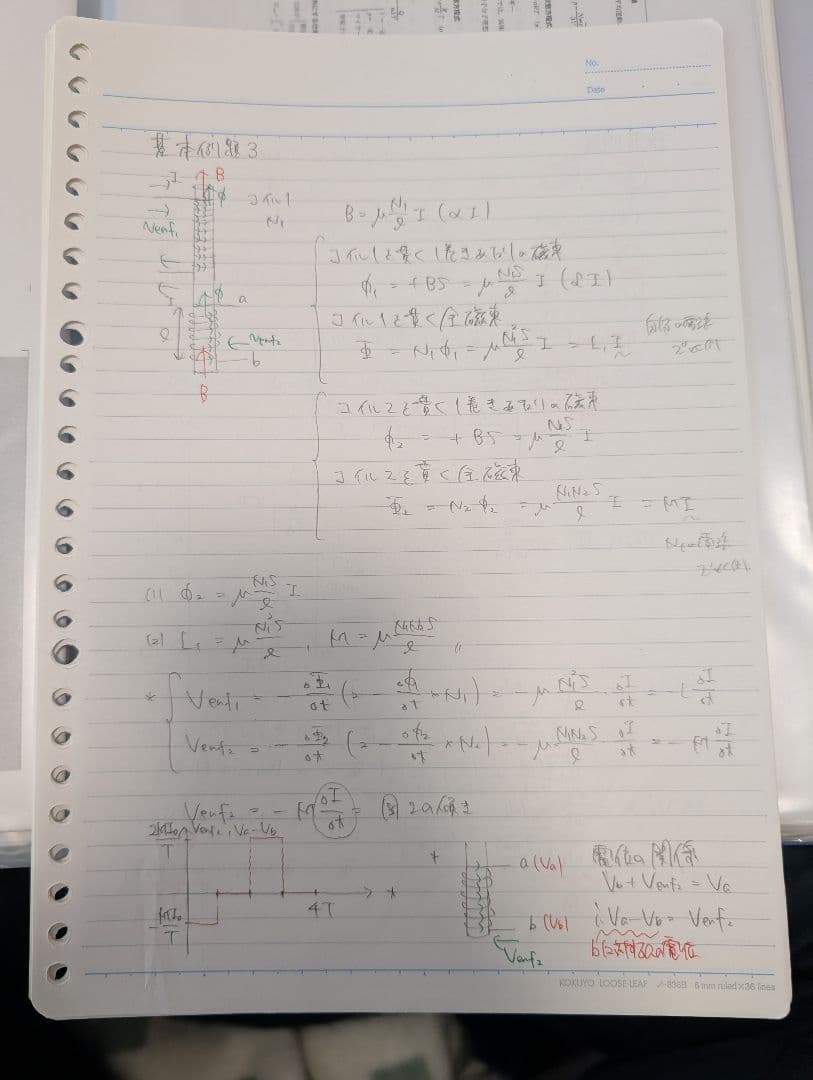 No.
Date
基本例題3
I
B
φ
コイル1
N₁
Vemf₁
I
φ
a
ℓ
Vemf₂
b
B
B = μ N₁/ℓ I (∝ I)
コイル1を貫く1巻きあたりの磁束
φ₁ = + BS = μ N₁S/ℓ I (∝ I)
コイル1を貫く全磁束
Φ₁ = N₁φ₁ = μ N₁²S/ℓ I = L₁ I
コイル2を貫く1巻きあたりの磁束
φ₂ = + BS = μ N₁S/ℓ I
コイル2を貫く全磁束
Φ₂ = N₂φ₂ = μ N₁N₂S/ℓ I = M I
(1) φ₂ = μ N₁S/ℓ I
(2) L₁ = μ N₁²S/ℓ , M = μ N₁N₂S/ℓ 〃
* Vemf₁ = - ΔΦ₁/Δt (= - Δφ₁/Δt × N₁) = - μ N₁²S/ℓ ΔI/Δt = - L ΔI/Δt
Vemf₂ = - ΔΦ₂/Δt (= - Δφ₂/Δt × N₂) = - μ N₁N₂S/ℓ ΔI/Δt = - M ΔI/Δt
Vemf₂ = - M ΔI/Δt = 図2の傾き
2MI₀/T
Vemf₂, Va-Vb
-MI₀/T
4T
t
*
a (Va)
b (Vb)
Vemf₂
電位の関係
Vb + Vemf₂ = Va
∴ Va - Vb = Vemf₂
bに対するaの電位
KOKUYO LOOSE-LEAF ノ-836B 6 mm ruled×36 lines